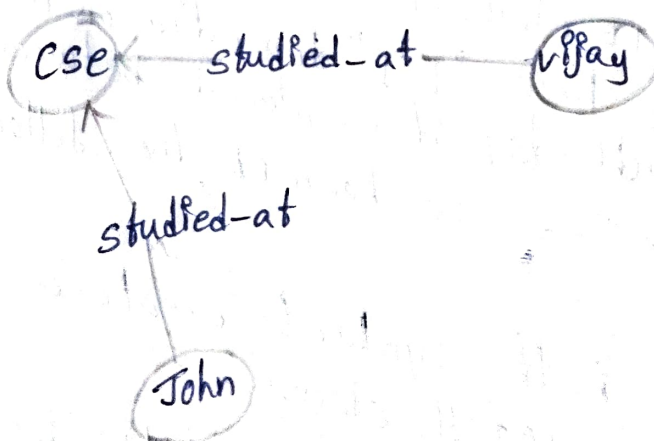 Cse studied-at vijay
studied-at
John